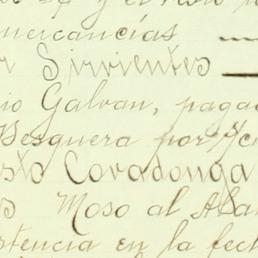 mercancías
Sirvientes
io Galvan, paga
Pesquera por
sto Covadonga
s Moso al
stencia en la fech